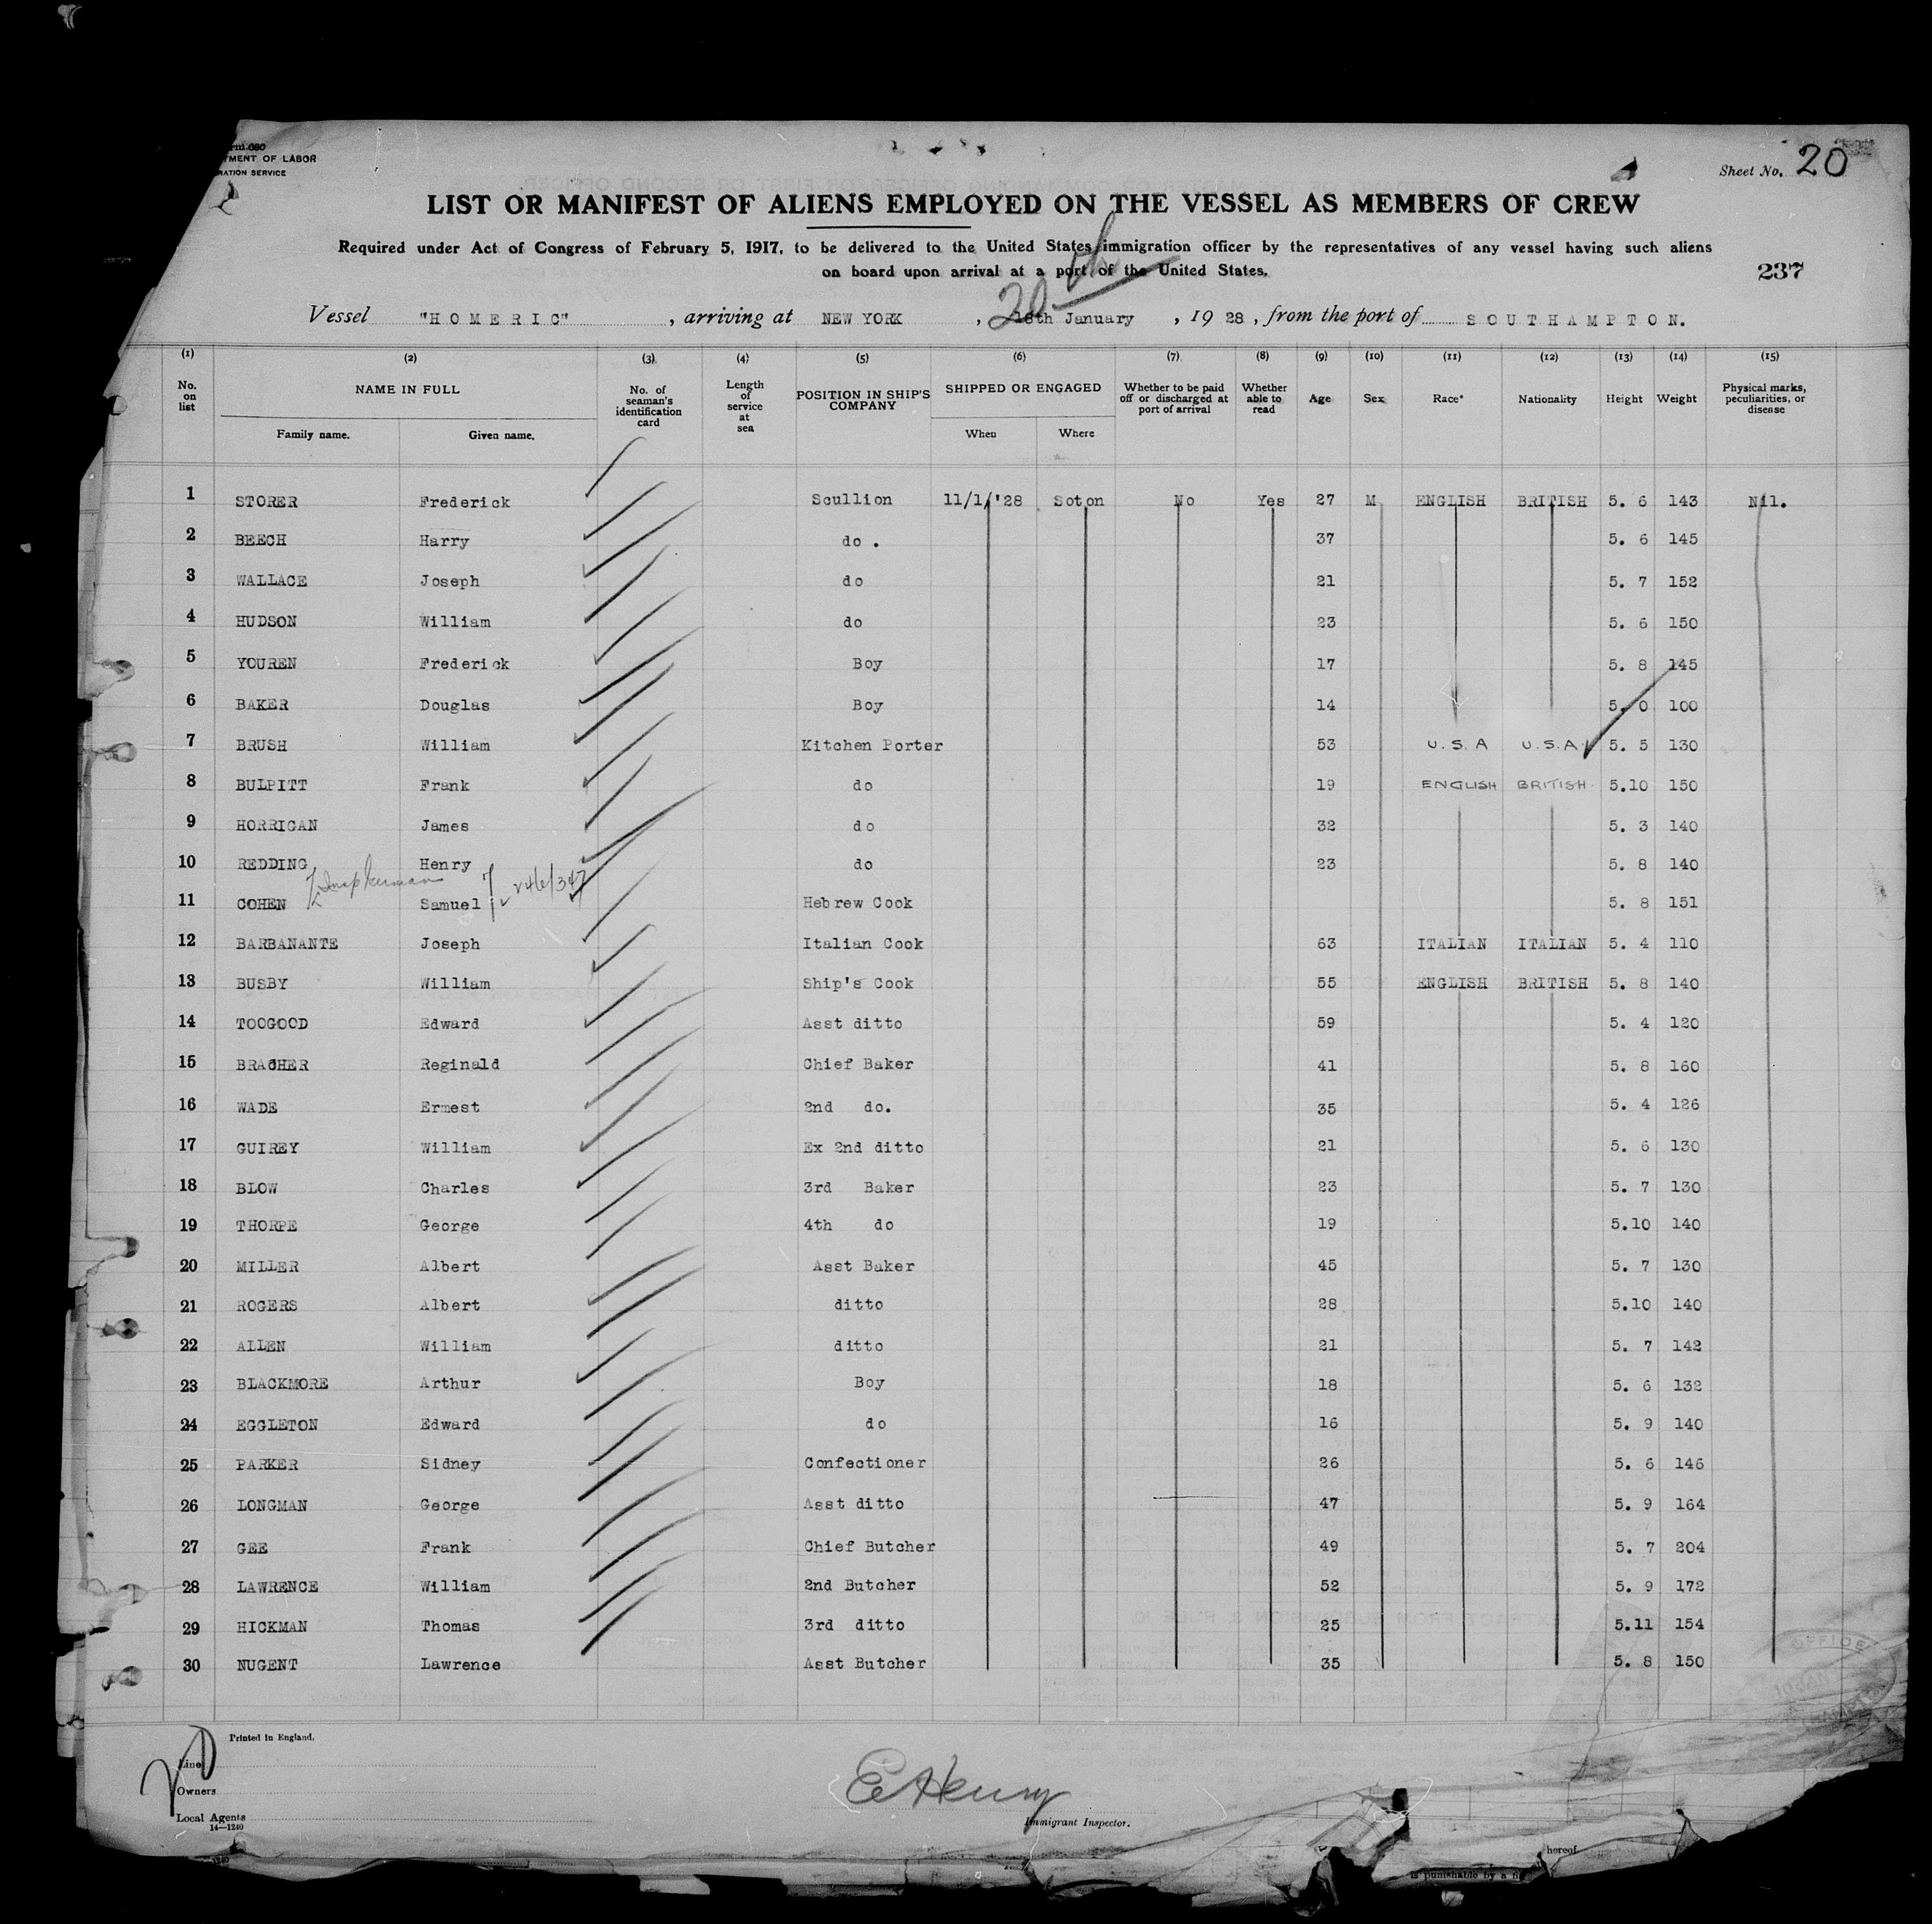 rm 680
TMENT OF LABOR
RATION SERVICE
Sheet No. 20
LIST OR MANIFEST OF ALIENS EMPLOYED ON THE VESSEL AS MEMBERS OF CREW
Required under Act of Congress of February 5, 1917, to be delivered to the United States immigration officer by the representatives of any vessel having such aliens
on board upon arrival at a port of the United States.
237
20th
Vessel "HOMERIC", arriving at NEW YORK, 18th January, 1928, from the port of SOUTHAMPTON.
(1) (2) (3) (4) (5) (6) (7) (8) (9) (10) (11) (12) (13) (14) (15)
No. on list NAME IN FULL No. of seaman's identification card Length of service at sea POSITION IN SHIP'S COMPANY SHIPPED OR ENGAGED Whether to be paid off or discharged at port of arrival Whether able to read Age Sex Race* Nationality Height Weight Physical marks, peculiarities, or disease
Family name. Given name. When Where
1 STORER Frederick Scullion 11/1/'28 Soton No Yes 27 M ENGLISH BRITISH 5. 6 143 Nil.
2 BEECH Harry do . 37 5. 6 145
3 WALLACE Joseph do 21 5. 7 152
4 HUDSON William do 23 5. 6 150
5 YOUREN Frederick Boy 17 5. 8 145
6 BAKER Douglas Boy 14 5. 0 100
7 BRUSH William Kitchen Porter 53 U.S.A U.S.A 5. 5 130
8 BULPITT Frank do 19 ENGLISH BRITISH 5.10 150
9 HORRIGAN James do 32 5. 3 140
10 REDDING Henry do 23 5. 8 140
11 COHEN Samuel Hebrew Cook 5. 8 151
12 BARBANANTE Joseph Italian Cook 63 ITALIAN ITALIAN 5. 4 110
13 BUSBY William Ship's Cook 55 ENGLISH BRITISH 5. 8 140
14 TOOGOOD Edward Asst ditto 59 5. 4 120
15 BRACHER Reginald Chief Baker 41 5. 8 160
16 WADE Ermest 2nd do. 35 5. 4 126
17 GUIREY William Ex 2nd ditto 21 5. 6 130
18 BLOW Charles 3rd Baker 23 5. 7 130
19 THORPE George 4th do 19 5.10 140
20 MILLER Albert Asst Baker 45 5. 7 130
21 ROGERS Albert ditto 28 5.10 140
22 ALLEN William ditto 21 5. 7 142
23 BLACKMORE Arthur Boy 18 5. 6 132
24 EGGLETON Edward do 16 5. 9 140
25 PARKER Sidney Confectioner 26 5. 6 146
26 LONGMAN George Asst ditto 47 5. 9 164
27 GEE Frank Chief Butcher 49 5. 7 204
28 LAWRENCE William 2nd Butcher 52 5. 9 172
29 HICKMAN Thomas 3rd ditto 25 5.11 154
30 NUGENT Lawrence Asst Butcher 35 5. 8 150
Printed in England.
Line
Owners
Local Agents
14—1240
E Henry
Immigrant Inspector.
OFFICE
hereof
is punishable by a